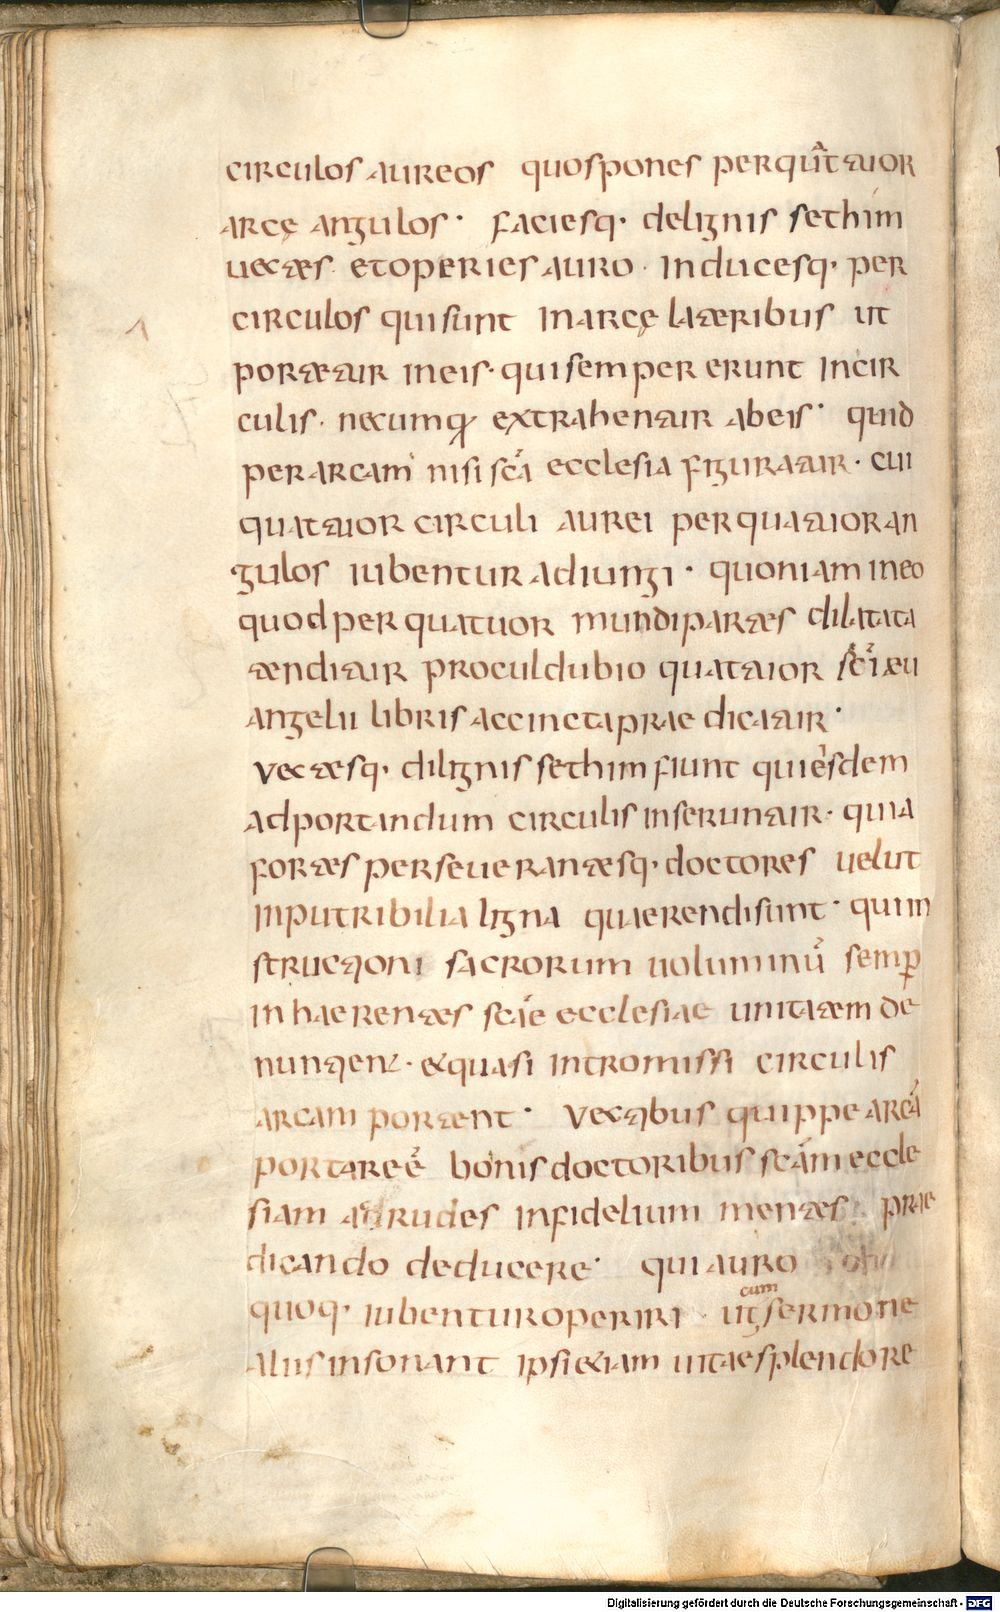 circulos aureos quos pones per quattuor
arcę angulos · faciesq· de lignis sethim
uectes · et operies auro · inducesq· per
circulos qui sunt in arcę lateribus ut
portetur in eis · qui semper erunt in cir
culis · nec umq̄ extrahentur ab eis · quid
per arcam nisi sc̄a ecclesia figuratur · cui
quattuor circuli aurei per quattuor an
gulos iubentur adiungi · quoniam in eo
quod per quatuor mundi partes dilatata
tenditur procul dubio quattuor sc̄i eu
angelii libris accincta praedicatur ·
vectesq· di lignis sethim fiunt qui eisdem
ad portandum circulis inseruntur · quia
fortes perseuerantesq· doctores uelut
inputribilia ligna quaerendi sunt · qui in
structioni sacrorum uoluminū semp̄
inhaerentes sc̄ae ecclesiae unitatem de
nuntient · et quasi intromissi circulis
arcam portent · vectibus quippe arcā
portare ē bonis doctoribus sc̄am eccle
siam ad rudes infidelium mentes · prae
dicando deducere · qui auro
quoq· iubentur operiri · ut cum sermone
aliis insonant ipsi etiam uitae splendore
Digitalisierung gefördert durch die Deutsche Forschungsgemeinschaft - DFG